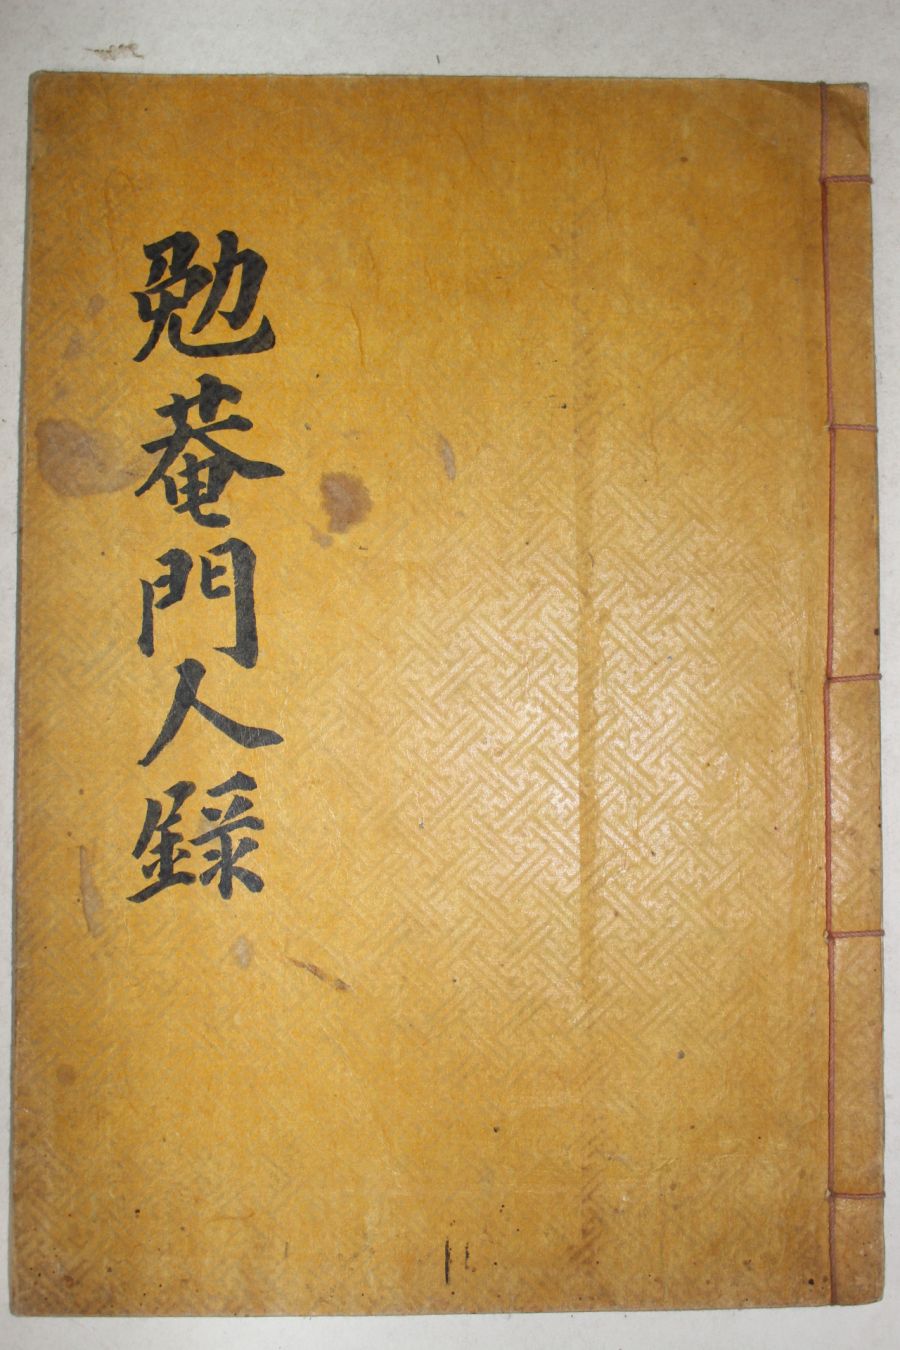 勉菴門人錄